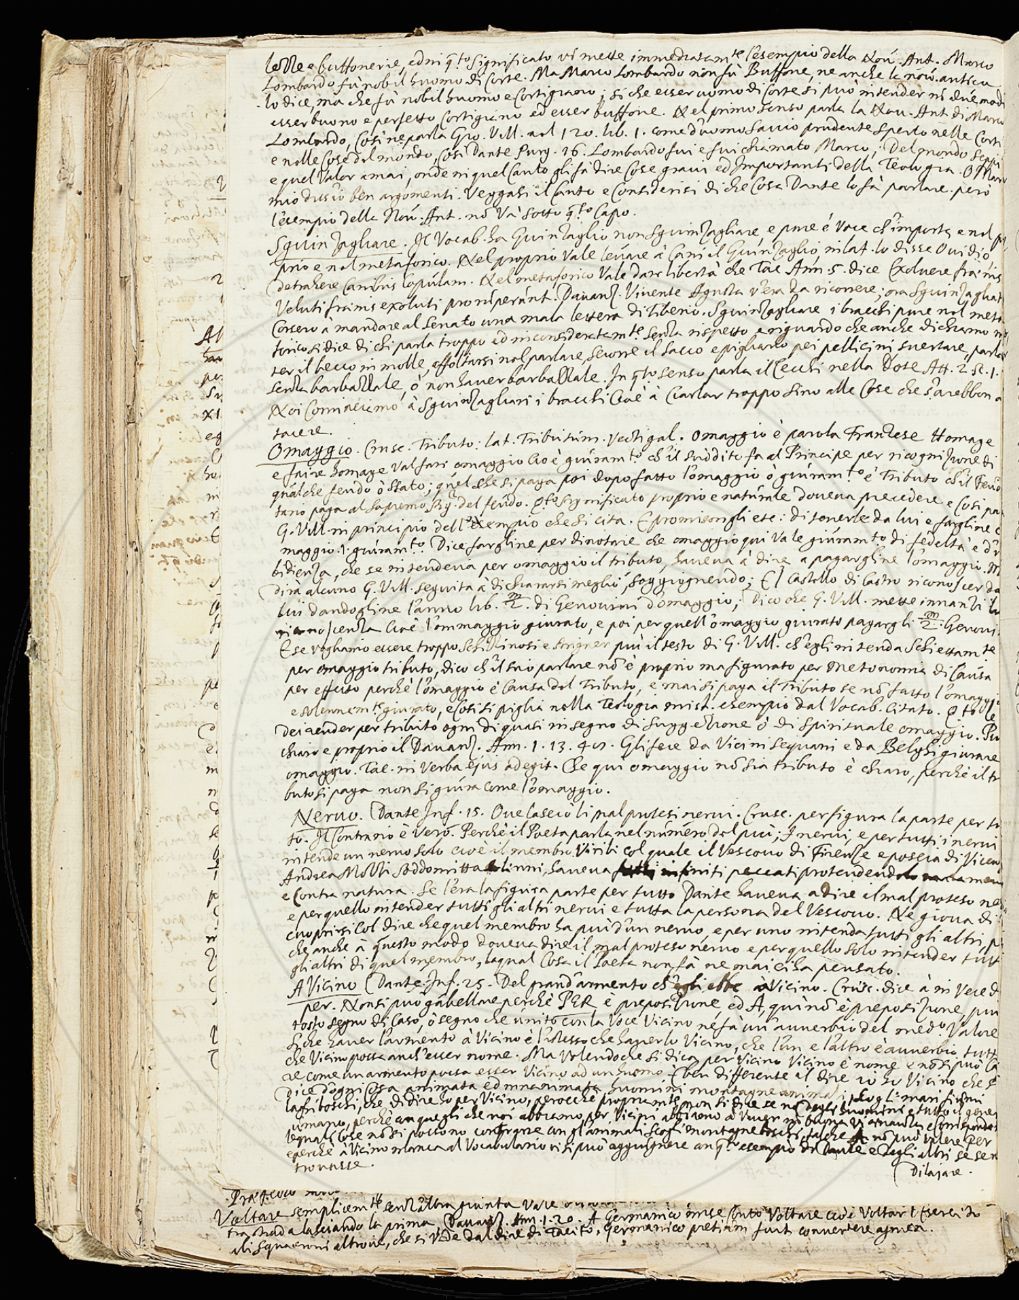 e buffonerie, ed in q.to significato vi mette immediatam.te l'esempio della Nou. Ant. Marco
Lombardo fù nobil huomo di Corte. Ma Marco Lombardo non fù Buffone, ne anche la nou. antica
lo dice, ma che fù nobil huomo e Cortigiano; si che esser uomo di Corte si può intender in due modi
esser buono e perfetto Cortigiano ed esser buffone. Nel primo senso parla la Nou. Ant. di Marco
Lombardo, Così ne parla Gio. Vill. al 120. lib. 1. come d'uomo savio prudente sperto nelle Corti
e nelle Cose del mondo, Così Dante Purg. 16. Lombardo fui e fui chiamato Marco; Del mondo seppi
e quel valor amai, onde in quel Canto gli fà dire Cose gravi ed Importanti dell' Teologia. O Marco
mio dissi io ben argomenti. Veggasi il Canto e Considerisi di che Cosa Dante lo fà parlare, però
l'esempio delle Nou. Ant. nō và sotto q.to Capo.
Sguinzagliare. Il Vocab. ha Guinzaglio non Sguinzagliare, e pure è Voce ch'importa e nel
prio e nel metaforico. Nel proprio Vale levare à Cani il Guinzaglio, in lat. lo disse Ovidio
detrahere Canibus Copulam. Nel metaforico Vale dare libertà che Tac. Ann. 5. dice Exolvere frænis
Velut frænis exoluti proruperant. Davanz. Vivente Agusta v'era da ricorrere; ora sguinzagliati
Corsero a mandare al Senato una mala lettera di Tiberio. Sguinzagliare i bracchi pure nel meta
forico si dice di chi parla troppo ed inconsideratam.te senza rispetto e riguardo che anche diciamo
ter il becco in molle, affoltarsi nel parlare, sciorre il sacco e pigliarlo pei pellicini svertare, parlar
senza barbazzale, ò non haver barbazzale. In q.to senso parla il Cecchi nella Dote Att. 2 sc. 1.
Noi Cominciemo à sguinzagliari i bracchi Cioè à Ciarlar troppo sino alle Cose che sarebbon
tacere.
Omaggio. Crusc. Tributo: lat. Tributum. Vectigal. Omaggio è parola Franzese Homage
e faire homage Val fari omaggio Cioè giuram.to ch'il suddito fa al Principe per ricognizione di
qualche feudo ò stato; quel che si paga poi dopo fatto l'omaggio ò giuram.to è Tributo ch'il
tario paga al supremo Sig.r del feudo. Q.to significato proprio e naturale doveva precedere, e Così
G. Vill. in principio dell'esempio che si cita. E promisongli etc: di tenerle da lui e fargline
maggio. 1. giuram.to. Dice fargline per dinotare che omaggio qui Vale giuram.to di fedeltà e
bidienza, che se intendeva per omaggio il tributo, haveva à dire a pagargline l'omaggio.
dirà alcuno G. Vill. seguita à dichiararsi meglio, soggiugnendo; El Castello di Castro riconoscer da
lui dandogline l'anno lib. di Genovini d'omaggio; Dico che G. Vill. mette innanzi
riconoscenza Cioè l'ommaggio giurato, e poi per quell'omaggio giurato pagargli Genovi.
E se vogliamo essere troppo più il testo di G. Vill. ch'egli intenda schiettam.te
per omaggio tributo, dico ch'il suo parlare nō è proprio ma figurato per Metonomia di Causa
per effetto perchè l'omaggio è Causa del Tributo, e mai si paga il tributo se nō fatto l'omaggio
e solennem.te giurato, e Così si piglia nella Teologia esempio dal Vocab. Citato. E tolse
Dei render per tributo ogni dì quasi in segno di suggezione ò di Spirituale omaggio. Più
chiaro e proprio il Davanz. Ann. 1. 13. Gli fece da Vicini Sequani e da Belghi giurare
omaggio. Tac. in verba ejus adegit. Che qui omaggio nō sia tributo è chiaro, perchè il tri
buto si paga non si giura come l'omaggio.
Nervo. Dante Inf. 15. Ove lasciò li mal protesi nervi. Crusc. per figura la parte per tu
to. Il Contrario è Vero. Perchè il Poeta parla nel numero del piu; I nervi, e per tutti i nervi
intende un nervo solo cioè il membro Virili Col quale il Vescovo di Firenze e poscia di Vicenza
Andrea Mozzi Soddomitta haveva peccati protendendolo
e Contra natura. Se l'era la figura parte per tutto Dante haveva a dire il mal proteso ner
e per quello intender tutti gli altri nervi e tutta la persona del Vescovo. Ne giova di
cuoprirsi Col dire che quel membro ha più d'un nervo, e per uno intenda tutti gli altri,
che anche à questo modo doveva dire il mal proteso nervo e per quello solo intender tutti
gli altri di quel membro, la qual Cosa il Poeta non fà ne mai ci ha pensato.
A Vicino Dante Inf. 25. Del grand'armento ch'egli ebbe à Vicino. Crusc. dice à in Vece di
per. Non si può gabellare perchè PER è preposizione, ed A, qui nō è preposizione, più
tosto segno di Caso, ò segno che unito con la Voce Vicino ne fà un avverbio del med.o Valore
Si che haver l'armento à Vicino è l'istesso che haverlo Vicino, che l'un e l'altro è avverbio, tutt
che Vicino possa anch'esser nome. Ma Volendo che si dica per Vicino Vicino è nome e nō si può
re come un armento possa esser Vicino ad un huomo. E ben differente il dire io ho Vicino che
dice d'ogni Cosa animata ed innanimata huomini montagne animali, scogli mari fiumi
che di dire ho per Vicino, perocchè propriamente non si dice se nō degli huomini e tutto il genere
umano, perchè
legnali Cose nō si possono
e perchè à Vicino manca al Vocabolario vi si può aggiugnere an q.to esempio di Dante e degli altri se sen
trovasse.
Dilajare.
Voltare semplicem.te senz'altra giunta Vale
tra strada lasciando la prima. Davanz. Ann. 1. 20. A Germanico Voltare cioè Voltar l'esercito
e li squadroni altrove, che si vede dal dire di Tacito, Germanico pretium fuit convertere agmen.